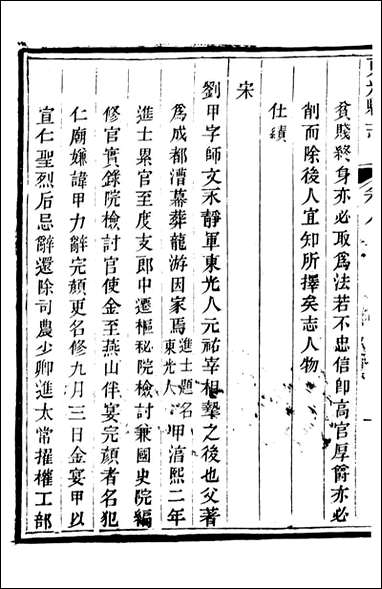 貧賤終身亦必取為法若不忠信卽高官厚爵亦必
削而除後人宜知所擇矣志人物
仕績
宋
劉甲字師文永靜軍東光人元祐宰相摯之後也父著
為成都漕幕葬龍游因家焉進士題名東光人甲淳熙二年
進士累官至度支郎中遷樞秘院檢討兼國史院編
修官實錄院檢討官使金至燕山伴宴完顏者名犯
仁廟嫌諱甲力辭完顏更名修九月三日金宴甲以
宣仁聖烈后忌辭還除司農少卿進太常擢權工部